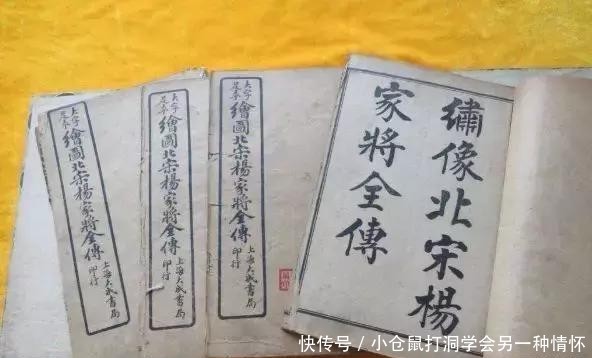 大字
足本
繪圖北宋楊家將全傳
上海大成書局
印行
大字
足本
繪圖北宋楊家將全傳
上海大成書局
印行
大字
足本
繪圖北宋楊家將全傳
上海大成書局
印行
繡像北宋楊
家將全傳
快传号/小仓鼠打洞学会另一种情怀